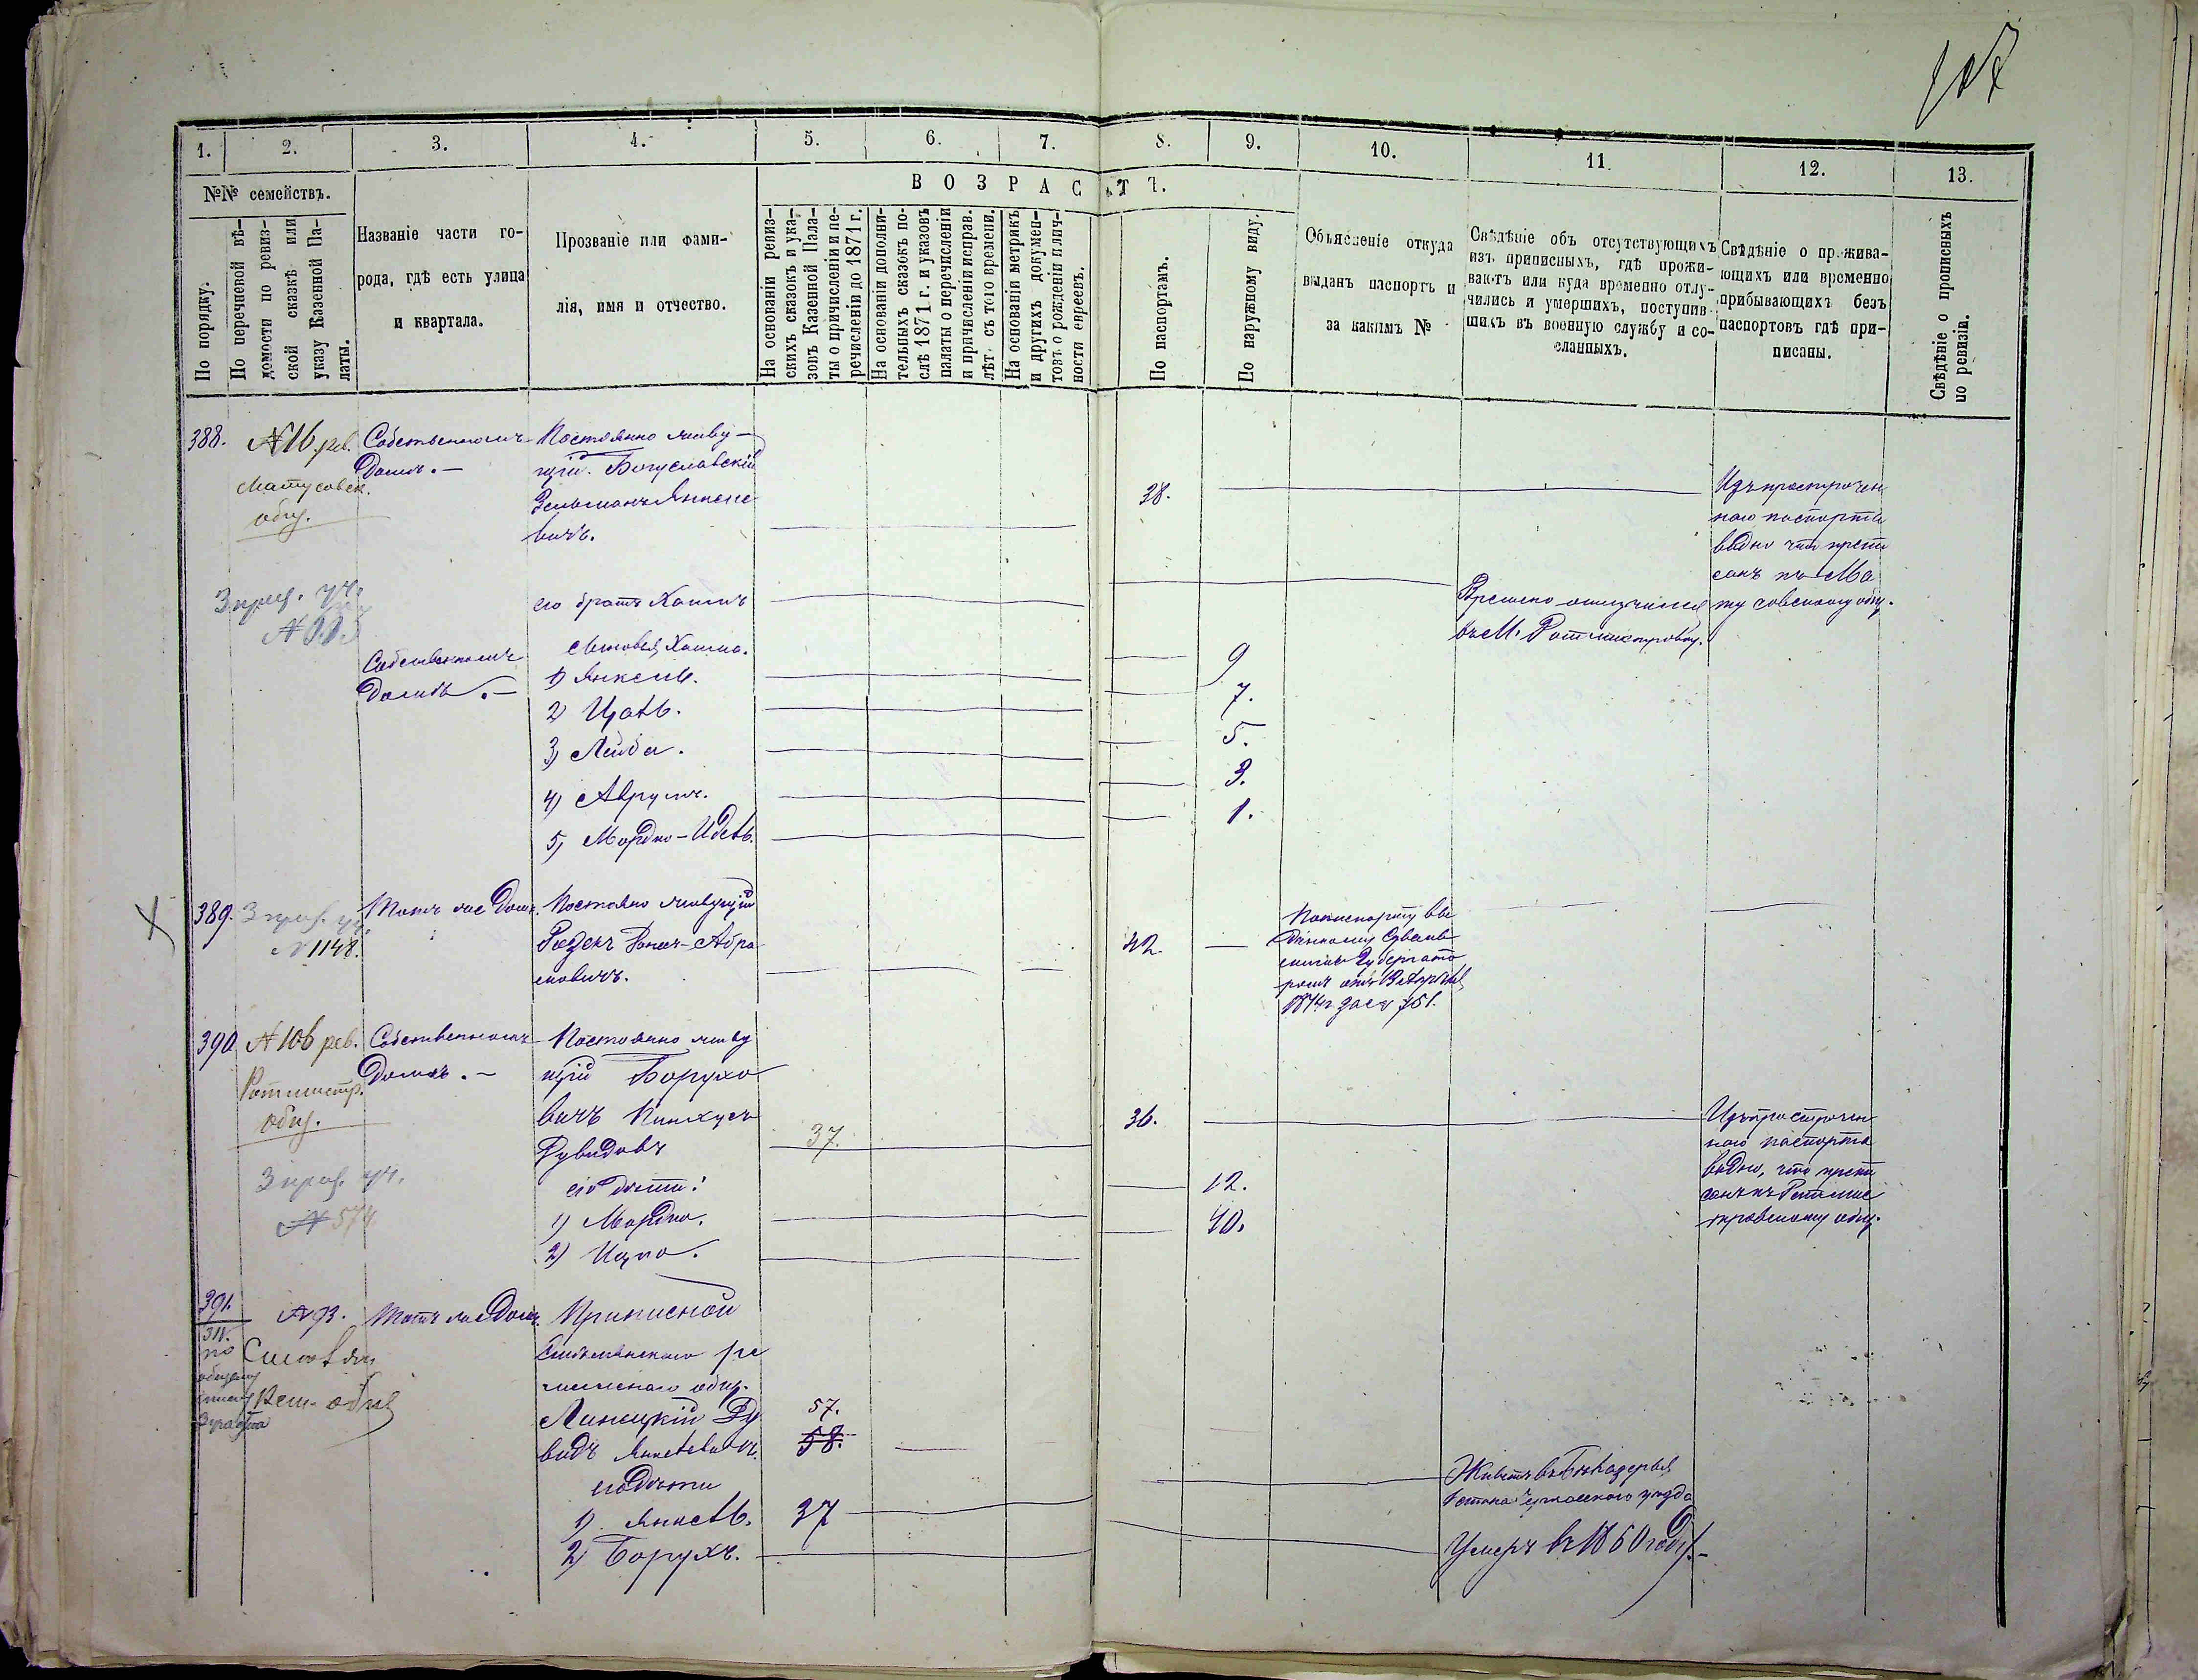 107
1.
2.
3.
4.
5.
6.
7.
8.
9.
10.
11.
12.
13.
№№ семействъ.
По порядку.
По перечневой вѣ-
домости по ревиз-
ской сказкѣ или
указу Казенной Па-
латы.
Названіе части го-
рода, гдѣ есть улица
и квартала.
Прозваніе или фами-
лія, имя и отчество.
ВОЗРАСТЪ.
На основаніи ревиз-
скихъ сказокъ и ука-
зовъ Казенной Пала-
ты о причисленіи и пе-
речисленіи до 1871 г.
На основаніи дополни-
тельныхъ сказокъ по-
слѣ 1871 г. и указовъ
палаты о перечисленіи
и причисленіи исправ.
лѣт. съ того времени.
На основаніи метрикъ
и другихъ докумен-
товъ о рожденіи и лич-
ности евреевъ.
По паспортамъ.
По наружному виду.
Объясненіе откуда
выданъ паспортъ и
за какимъ №
Свѣдѣніе объ отсутствующихъ
изъ приписныхъ, гдѣ прожи-
ваютъ или куда временно отлу-
чились и умершихъ, поступив-
шихъ въ военную службу и со-
сланныхъ.
Свѣдѣніе о прожива-
ющихъ или временно
прибывающихъ безъ
паспортовъ гдѣ при-
писаны.
Свѣдѣніе о прописныхъ
по ревизіи.
388.
№ 16 рев.
Матусовск.
общ.
3 приз. уч.
Собственномъ
домѣ. —
Постоянно живу-
щій. Богуславскій
Зельманъ Янкеле-
вичъ.
38.
Изъ просрочен
наго паспорта
видно что припи
санъ къ Ма
тусовскому общ.
его братъ Хаимъ
Временно отлучился
въ М. Ротмистровку.
Собственномъ
домѣ. —
сыновья Хаима.
1) Янкель.
9
2) Ицль.
7.
3) Лейба.
5.
4) Аврумъ.
3.
5) Мордко-Идель.
1.
389.
3 приз. уч.
№ 1148.
Тотъ же домъ.
Постоянно живущій
Абра
мовичъ.
42.
По паспорту вы
данному
Губернато
ромъ отъ
1874 г за № 751.
390
№ 106 рев.
Ротмистр.
общ.
3 приз. уч.
№ 574
Собственномъ
домѣ. —
Постоянно живу
щій Борухо
вичъ Пинхусъ
Дувидовъ
37.
36.
Изъ просрочен
наго паспорта
видно, что припи
санъ къ Ротмис
тровскому общ.
его дѣти:
1) Мордко.
12.
2) Ицко.
10.
391.
311.
по
общему
списку
3 участка
№ 93.
Смѣлян
Рем. общ
Тотъ же домъ.
Приписной
Смѣлянскаго ре
месленаго общ.
Линецкій Ду
видъ Янкелевичъ.
57.
58.
его дѣти
1) Янкель.
37
Живетъ въ
Черкасского уѣзда
2) Борухъ.
Умеръ въ 1860 году. —